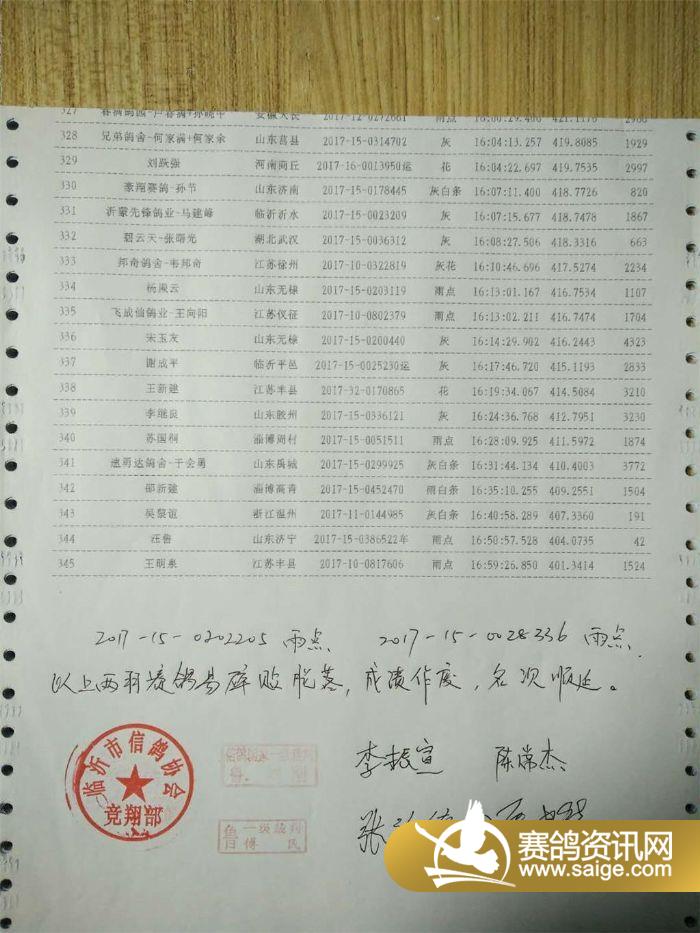 327 春满鸽园-卢春满+孙晓平 安徽天长 2017-12-0272661 雨点 16:00:29.400 421.1170 2966
328 兄弟鸽舍-何家满+何家余 山东莒县 2017-15-0314702 灰 16:04:13.257 419.8085 1929
329 刘跃强 河南商丘 2017-16-0013950运 花 16:04:22.697 419.7535 2997
330 豪翔赛鸽-孙节 山东济南 2017-15-0178445 灰白条 16:07:11.400 418.7726 820
331 沂蒙先锋鸽业-马建峰 临沂沂水 2017-15-0023209 灰 16:07:15.677 418.7478 1867
332 碧云天-张曙光 湖北武汉 2017-15-0036312 灰 16:08:27.506 418.3316 663
333 邦奇鸽舍-韦邦奇 江苏徐州 2017-10-0322819 灰花 16:10:46.696 417.5274 2234
334 杨殿云 山东无棣 2017-15-0203119 雨点 16:13:01.167 416.7534 1107
335 飞成仙鸽业-王向阳 江苏仪征 2017-10-0802379 雨点 16:13:02.211 416.7474 1704
336 宋玉友 山东无棣 2017-15-0200440 灰 16:14:29.902 416.2443 4323
337 谢成平 临沂平邑 2017-15-0025230运 灰 16:17:46.720 415.1193 2833
338 王新建 江苏丰县 2017-32-0170865 花 16:19:34.067 414.5084 3210
339 李继良 山东胶州 2017-15-0336121 灰 16:24:36.768 412.7951 3230
340 苏国桐 淄博周村 2017-15-0051511 雨点 16:28:09.925 411.5972 1874
341 速勇达鸽舍-于会勇 山东禹城 2017-15-0299925 灰白条 16:31:44.134 410.4003 3772
342 邵新建 淄博高青 2017-15-0452470 雨白条 16:35:10.255 409.2551 1504
343 吴黎谊 浙江温州 2017-11-0144985 灰白条 16:40:58.289 407.3360 191
344 汪鲁 山东济宁 2017-15-0386522年 雨点 16:50:57.528 404.0735 42
345 王明泉 江苏丰县 2017-10-0817606 雨点 16:59:26.850 401.3414 1524
2017-15-0202205 雨点 2017-15-0028336 雨点.
以上两羽赛鸽暑碎贴脱落,成绩作废,名次顺延。
临沂市信鸽协会
竞翔部
李振宣 陈常杰
一级裁判
张
赛鸽资讯网
www.saige.com